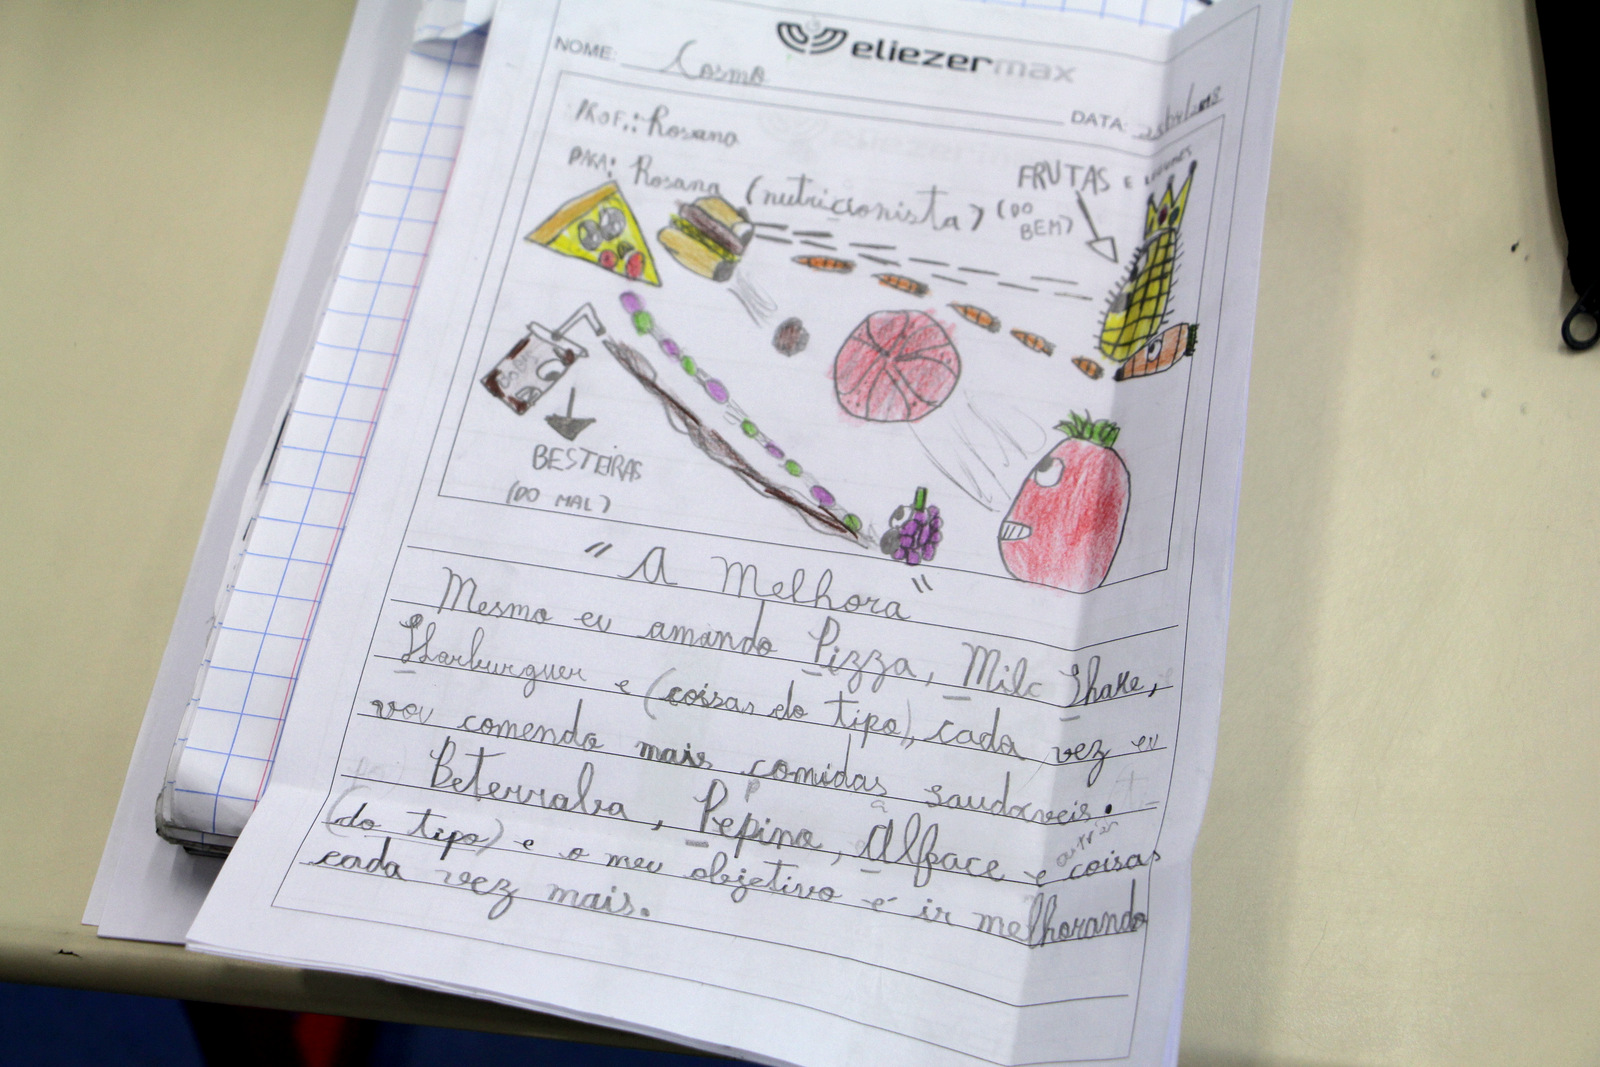 eliezermax
NOME: Cosmo
DATA:
PROF.: Rosana
PARA: Rosana (nutricionista)
FRUTAS E LEGUMES
(DO
BEM)
BESTEIRAS
(DO MAL)
"A Melhora"
Mesmo eu amando Pizza, Milc Shake,
Harburguer e (coisas do tipo), cada vez eu
vou comendo mais comidas saudaveis.
Beterraba, Pepino, Alface e outras coisas
(do tipo) e o meu objetivo é ir melhorando
cada vez mais.